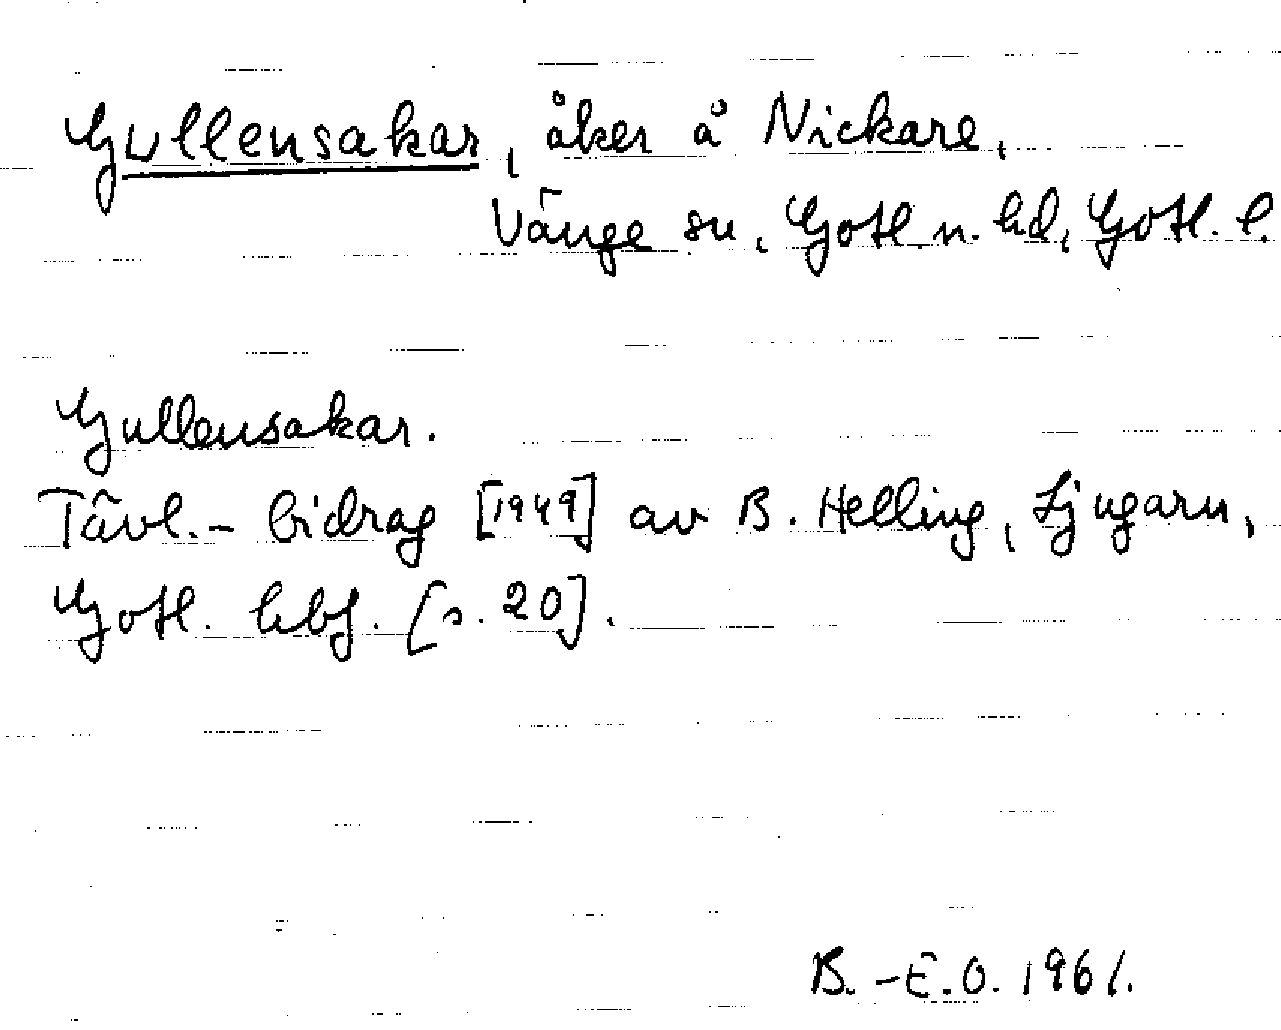 Gullensakar, åker å Nickare,
Vänge sn, Gotl n. hd, Gotl. l.
Gullensakar.
Tävl.- bidrag [1949] av B. Helling, Ljugarn,
Gotl. hbf. [s. 20].
B.-E.O. 1961.